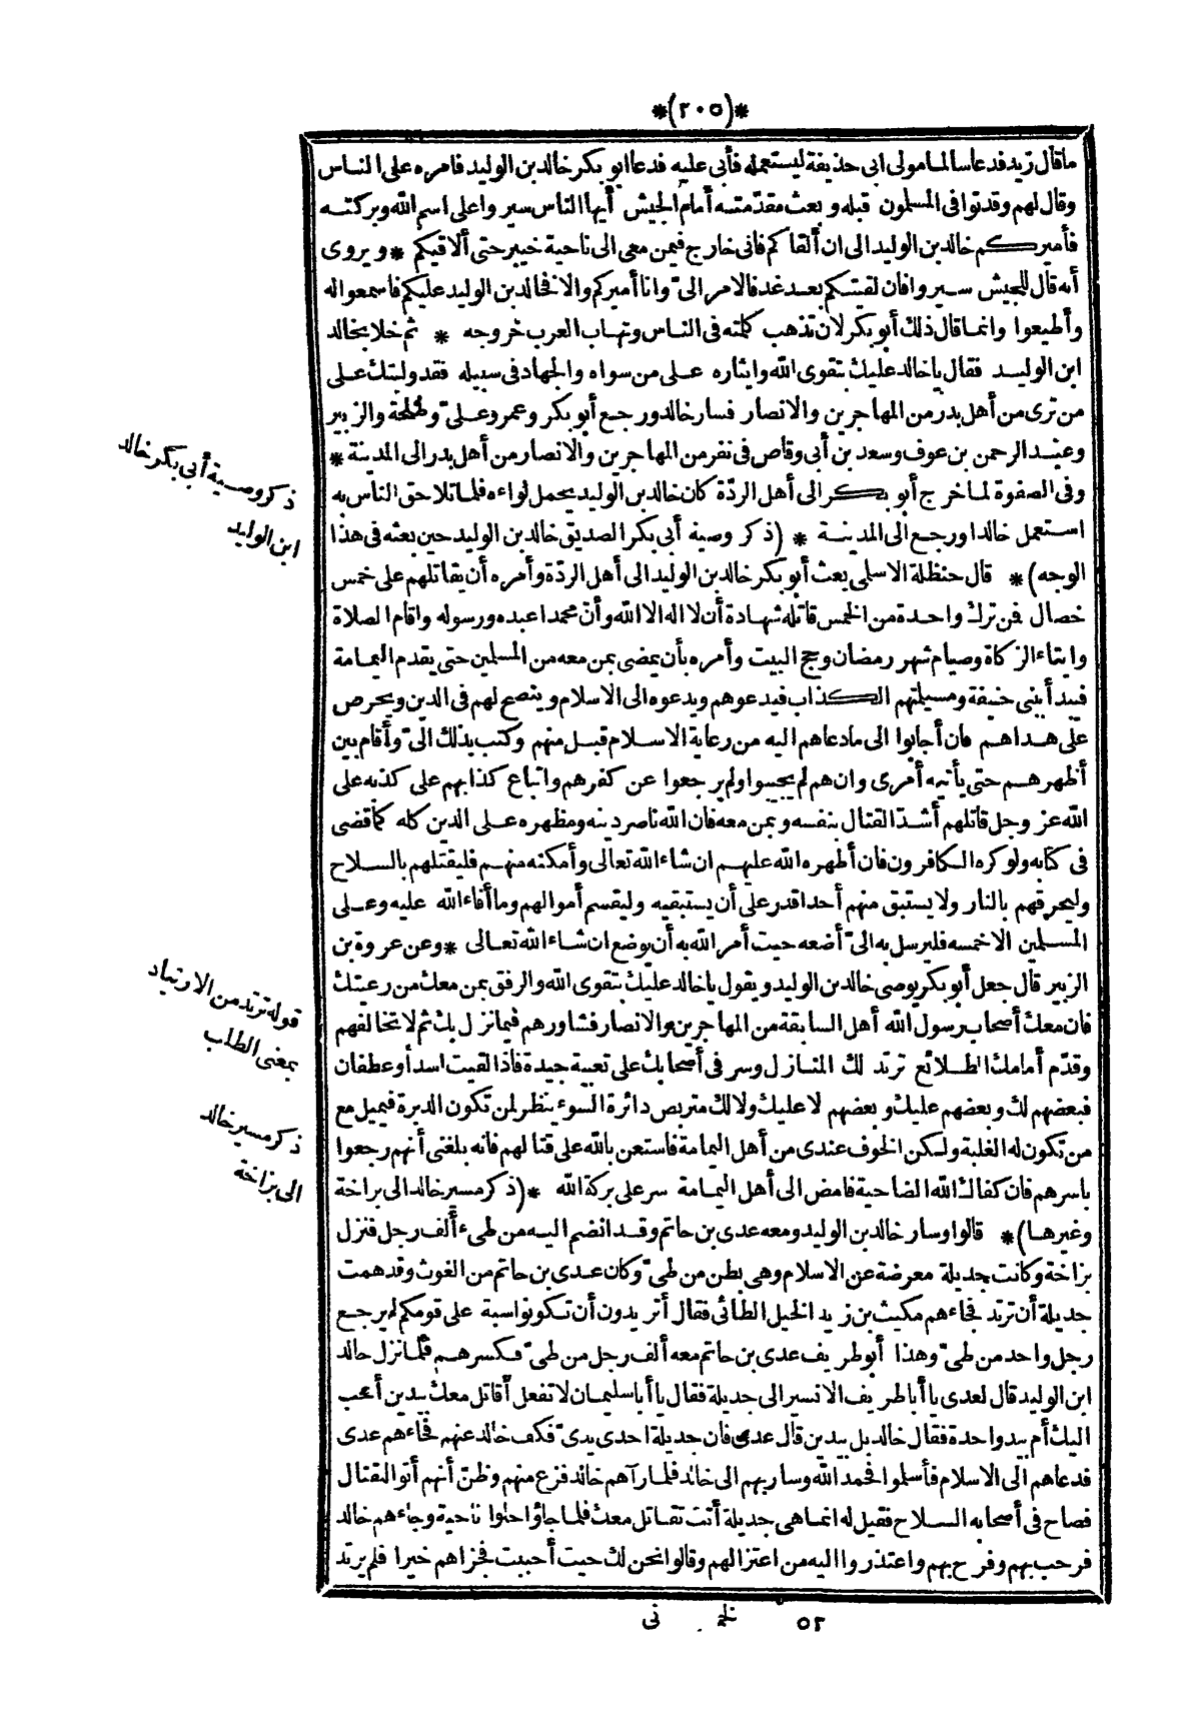 *(٢٠٥)*
ما قال زيد فدعا سالما مولى ابى حذيفة ليستعمله فأبى عليه فدعا ابو بكر خالد بن الوليد فامره على الناس
وقال لهم وقد توافى المسلمون قبله وبعث مقدّمته أمام الجيش أيها الناس سيروا على اسم الله وبركته
فأميركم خالد بن الوليد الى ان ألقاكم فانى خارج فيمن معى الى ناحية خيبر حتى ألاقيكم * ويروى
أنه قال للجيش سيروا فان لقيتكم بعد غد فالامر الىّ وانا أميركم والا فخالد بن الوليد عليكم فاسمعوا له
وأطيعوا وانما قال ذلك أبو بكر لان تذهب كلمته فى الناس وتهاب العرب خروجه * ثم خلا بخالد
ابن الوليد فقال يا خالد عليك بتقوى الله وايثاره على من سواه والجهاد فى سبيله فقد وليتك على
من ترى من أهل بدر من المهاجرين والانصار فسار خالد ورجع أبو بكر وعمر وعلىّ وطلحة والزبير
وعبد الرحمن بن عوف وسعد بن أبى وقاص فى نفر من المهاجرين والانصار من أهل بدر الى المدينة *
وفى الصفوة لما خرج أبو بكر الى أهل الردّة كان خالد بن الوليد يحمل لواءه فلما تلاحق الناس به
استعمل خالدا ورجع الى المدينة * (ذكر وصية أبى بكر الصديق خالد بن الوليد حين بعثه فى هذا
الوجه)* قال حنظلة الاسلمى بعث أبو بكر خالد بن الوليد الى أهل الردّة وأمره أن يقاتلهم على خمس
خصال فمن ترك واحدة من الخمس قاتله شهادة أن لا اله الا الله وأنّ محمدا عبده ورسوله واقام الصلاة
وايتاء الزكاة وصيام شهر رمضان وحج البيت وأمره بأن يمضى بمن معه من المسلمين حتى يقدم اليمامة
فيبدأ ببنى حنيفة ومسيلمتهم الكذاب فيدعوهم ويدعوه الى الاسلام وينصح لهم فى الدين ويحرص
على هداهم فان أجابوا الى ما دعاهم اليه من رعاية الاسلام قبل منهم وكتب بذلك الىّ وأقام بين
أظهرهم حتى يأتيه أمرى وان هم لم يجيبوا ولم يرجعوا عن كفرهم واتباع كذابهم على كذبه على
الله عز وجل قاتلهم أشدّ القتال بنفسه وبمن معه فان الله ناصر دينه ومظهره على الدين كله كما قضى
فى كتابه ولو كره الكافرون فان أظهره الله عليهم ان شاء الله تعالى وأمكنه منهم فليقتلهم بالسلاح
وليحرقهم بالنار ولا يستبق منهم أحدا قدر على أن يستبقيه وليقسم أموالهم وما أفاء الله عليه وعلى
المسلمين الاخمسه فليرسل به الىّ أضعه حيث أمر الله به أن يوضع ان شاء الله تعالى * وعن عروة بن
الزبير قال جعل أبو بكر يوصى خالد بن الوليد ويقول يا خالد عليك بتقوى الله والرفق بمن معك من رعيتك
فان معك أصحاب رسول الله أهل السابقة من المهاجرين والانصار فشاورهم فيما نزل بك ثم لا تخالفهم
وقدّم أمامك الطلائع ترتد لك المنازل وسر فى أصحابك على تعبية جيدة فاذا لقيت اسدا وغطفان
فبعضهم لك وبعضهم عليك وبعضهم لا عليك ولا لك متربص دائرة السوء ينظر لمن تكون الدبرة فيميل مع
من تكون له الغلبة ولكن الخوف عندى من أهل اليمامة فاستعن بالله على قتالهم فانه بلغنى أنهم رجعوا
باسرهم فان كفاك الله الضاحية فامض الى أهل اليمامة سر على بركة الله *(ذكر مسير خالد الى بزاخة
وغيرها)* قالوا وسار خالد بن الوليد ومعه عدى بن حاتم وقد انضم اليه من طىء ألف رجل فنزل
بزاخة وكانت جديلة معرضة عن الاسلام وهى بطن من طىّ وكان عدى بن حاتم من الغوث وقد همت
جديلة أن ترتد فجاءهم مكيث بن زيد الخيل الطائى فقال أتريدون أن تكونوا سبة على قومكم لم يرجع
رجل واحد من طىّ وهذا أبو طريف عدى بن حاتم معه ألف رجل من طىّ فكسرهم فلما نزل خالد
ابن الوليد قال لعدى يا أبا طريف الا نسير الى جديلة فقال يا أبا سليمان لا تفعل أقاتل معك بيدين أحب
اليك أم بيد واحدة فقال خالد بل بيدين قال عدى فان جديلة احدى يدىّ فكف خالد عنهم فجاءهم عدى
فدعاهم الى الاسلام فأسلموا فحمد الله وسار بهم الى خالد فلما رآهم خالد فزع منهم وظنّ أنهم أتوا للقتال
فصاح فى أصحابه السلاح فقيل له انما هى جديلة أتت تقاتل معك فلما جاؤا حلوا ناحية وجاءهم خالد
فرحب بهم وفرح بهم واعتذروا اليه من اعتزالهم وقالوا نحن لك حيث أحببت فجزاهم خيرا فلم يرتد
ذكر وصية أبى بكر خالد
ابن الوليد
قوله ترتد من الارتياد
بمعنى الطلب
ذكر مسير خالد
الى بزاخة
٥٢ نى